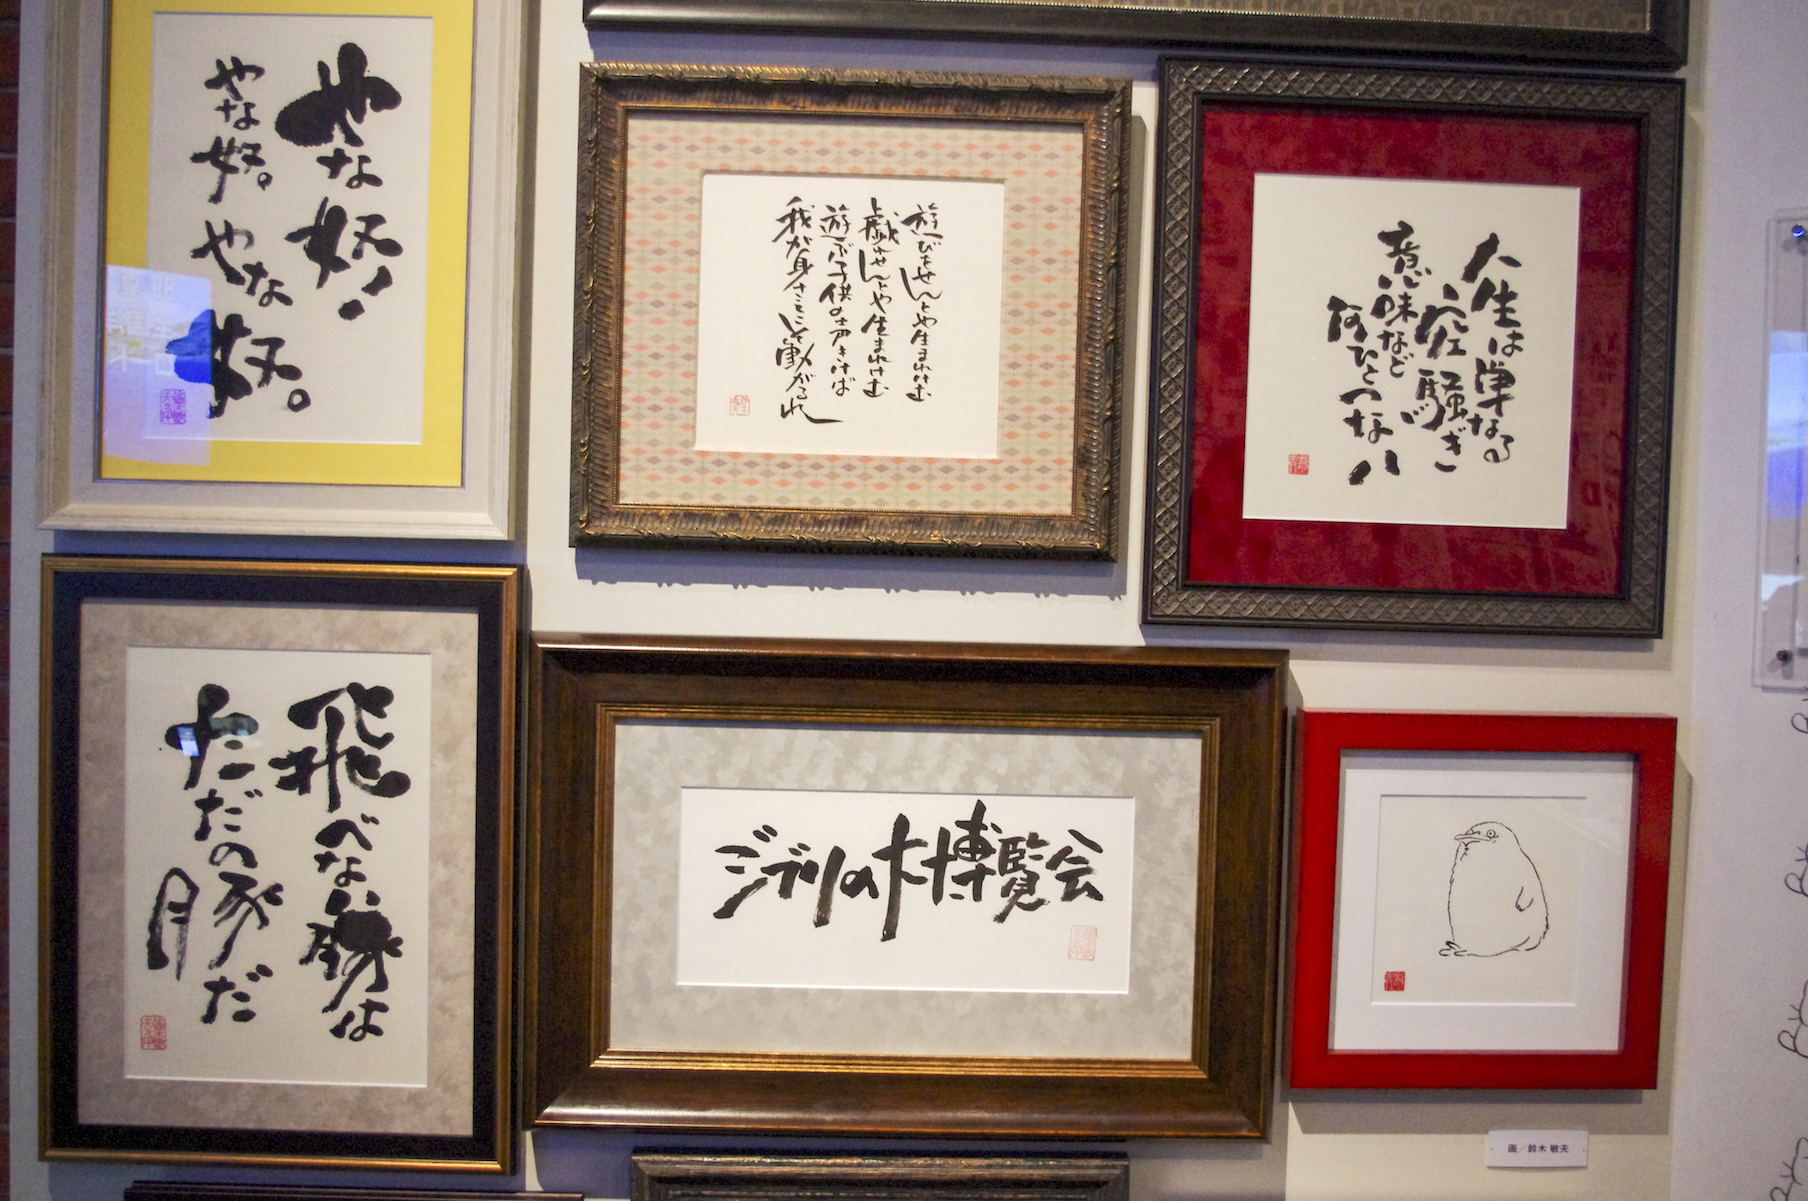 やな奴!
やな奴。やな奴。
遊びをせんとや生まれけむ
戯せんとや生まれけむ
遊ぶ子供の声きけば
我が身さえこそ動がるれ
人生は単なる
空騒ぎ
意味など
何ひとつない
飛べない豚は
ただの豚だ
月
ジブリの大博覧会
画／鈴木 敏夫